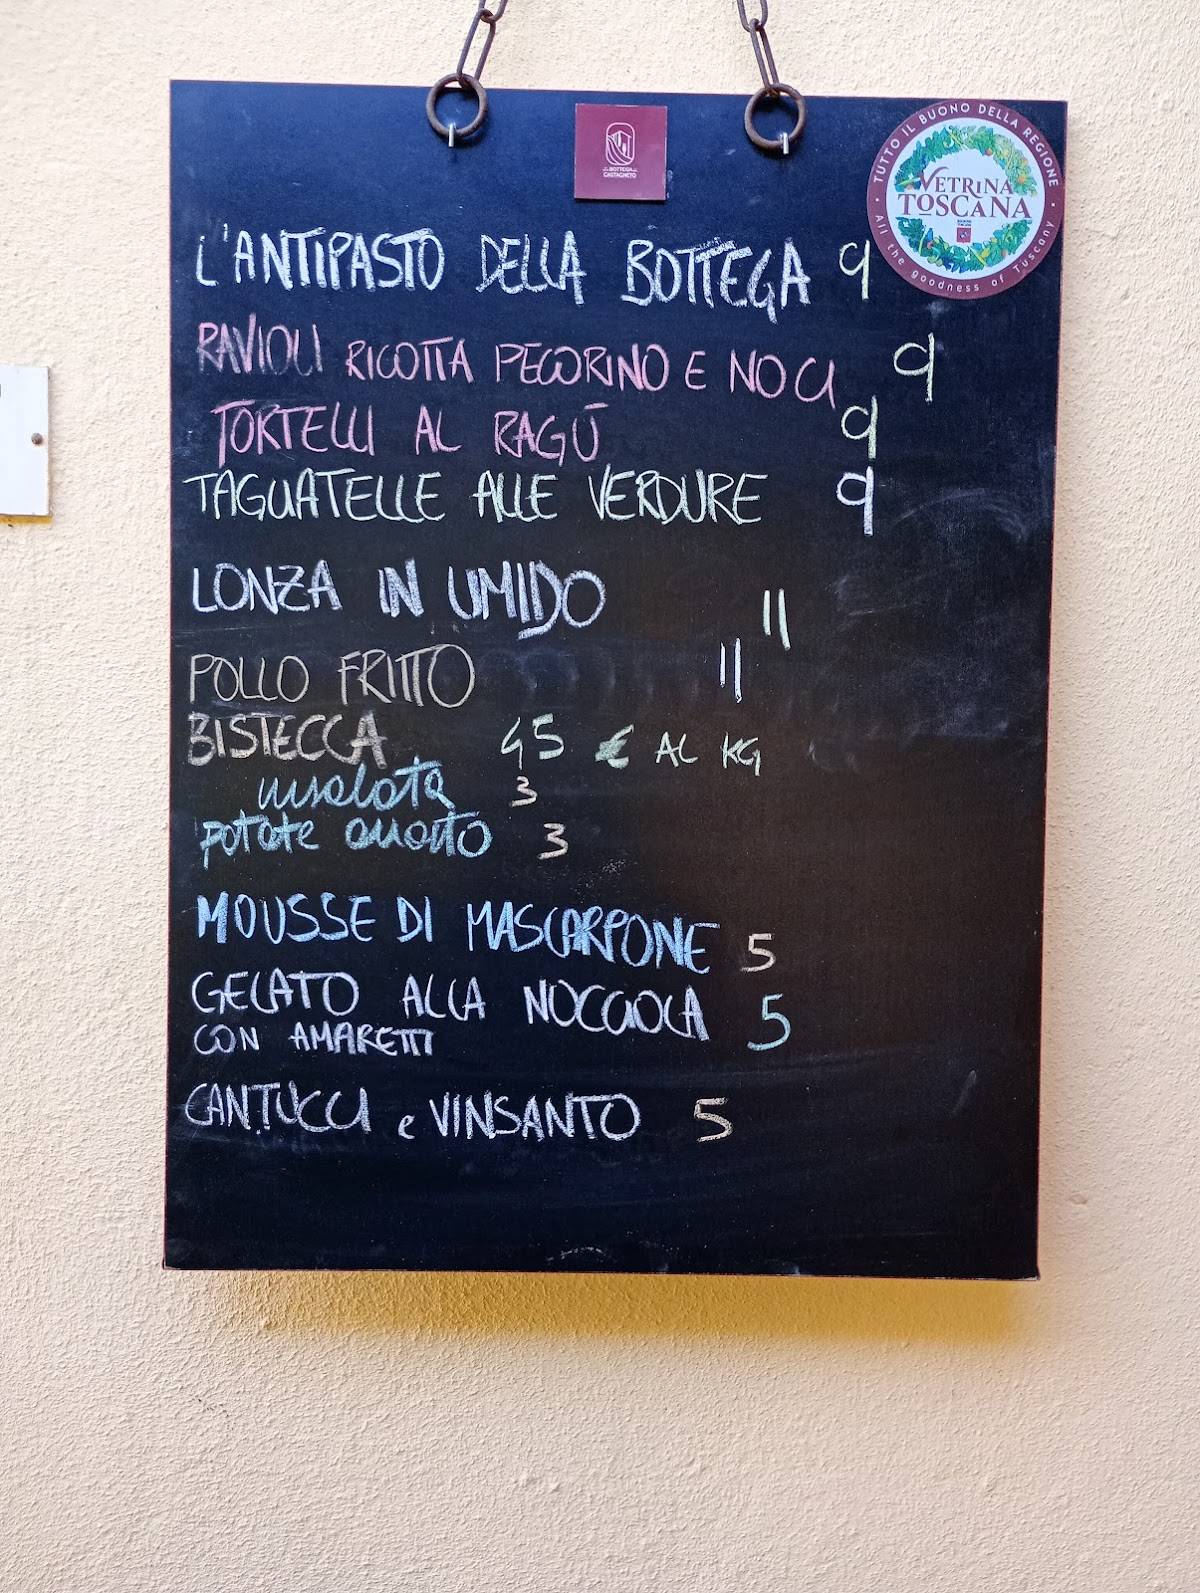 BOTTEGA
CASTAGNETO
TUTTO IL BUONO DELLA REGIONE
VETRINA
TOSCANA
All the goodness of Tuscany
L'ANTIPASTO DELLA BOTTEGA 9
RAVIOLI RICOTTA PECORINO E NOCI 9
TORTELLI AL RAGÚ 9
TAGLIATELLE ALLE VERDURE 9
LONZA IN UMIDO 11
POLLO FRITTO 11
BISTECCA 45 € AL KG
insalata 3
patate arrosto 3
MOUSSE DI MASCARPONE 5
GELATO ALLA NOCCIOLA 5
CON AMARETTI
CANTUCCI e VINSANTO 5